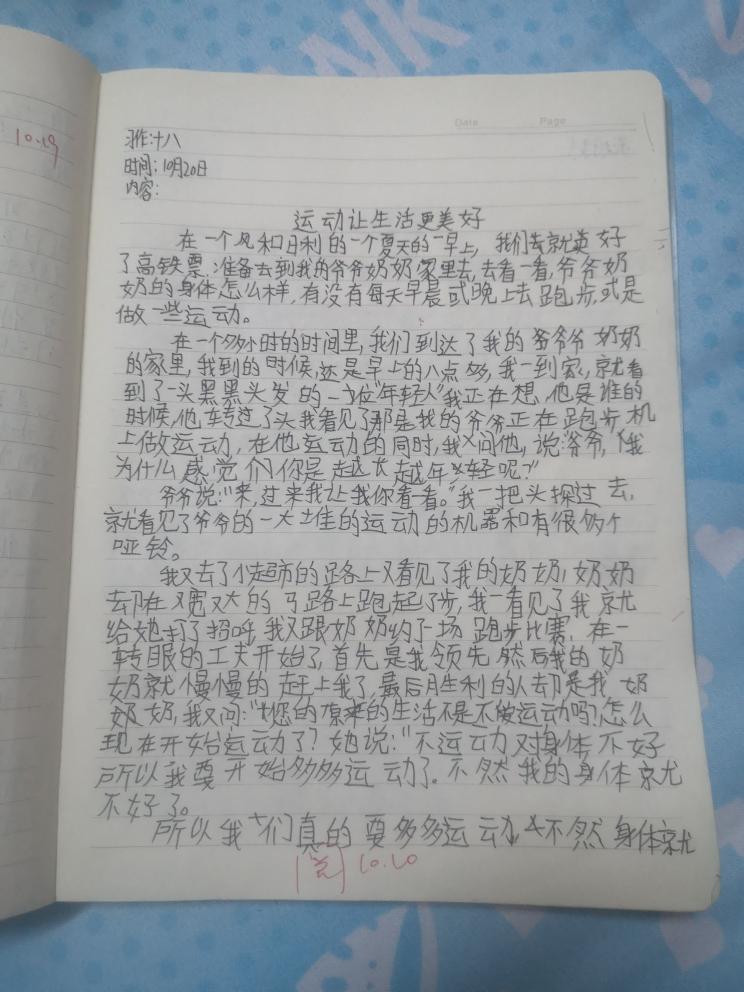 10.19
Date Page
习作:十八
时间:10月20日
内容:
运动让生活更美好
在一个风和日利的一个夏天的一早上,我们去就买好
了高铁票.准备去到我的爷爷奶奶家里去,去看一看,爷爷奶
奶的身体怎么样,有没有每天早晨或晚上去跑步,或是
做一些运动。
在一个多小时的时间里,我们到达了我的爷爷爷奶奶
的家里,我到的时候,还是早上的八点多,我一到家,就看
到了一头黑黑头发的一位“年轻人”我正在想,他是谁的
时候,他转过了头我看见了那是我的爷爷正在跑步机
上做运动,在他运动的同时,我问他,说:“爷爷,我
为什么感觉们你是越长越年轻呢?”
爷爷说:“来,过来我让我你看看。”我一把头探过去,
就看见了爷爷的一大堆的运动的机器和有很多个
哑铃。
我又去了小超市的路上又看见了我的奶奶,奶奶
却在又宽又大的马路上跑起了步,我一看见了我就
给她打了招呼,我又跟奶奶约了场跑步比赛,在一
转眼的工夫开始了,首先是我领先然后我的奶
奶就慢慢的赶上我了,最后胜利的人却是我奶
奶奶,我又问:“您的原来的生活不是不爱运动吗?怎么
现在开始运动了?她说:“不运动对身体不好
所以我要开始多多运动了.不然我的身体就
不好了。
所以我们真的要多多运动,不然身体就
10.20